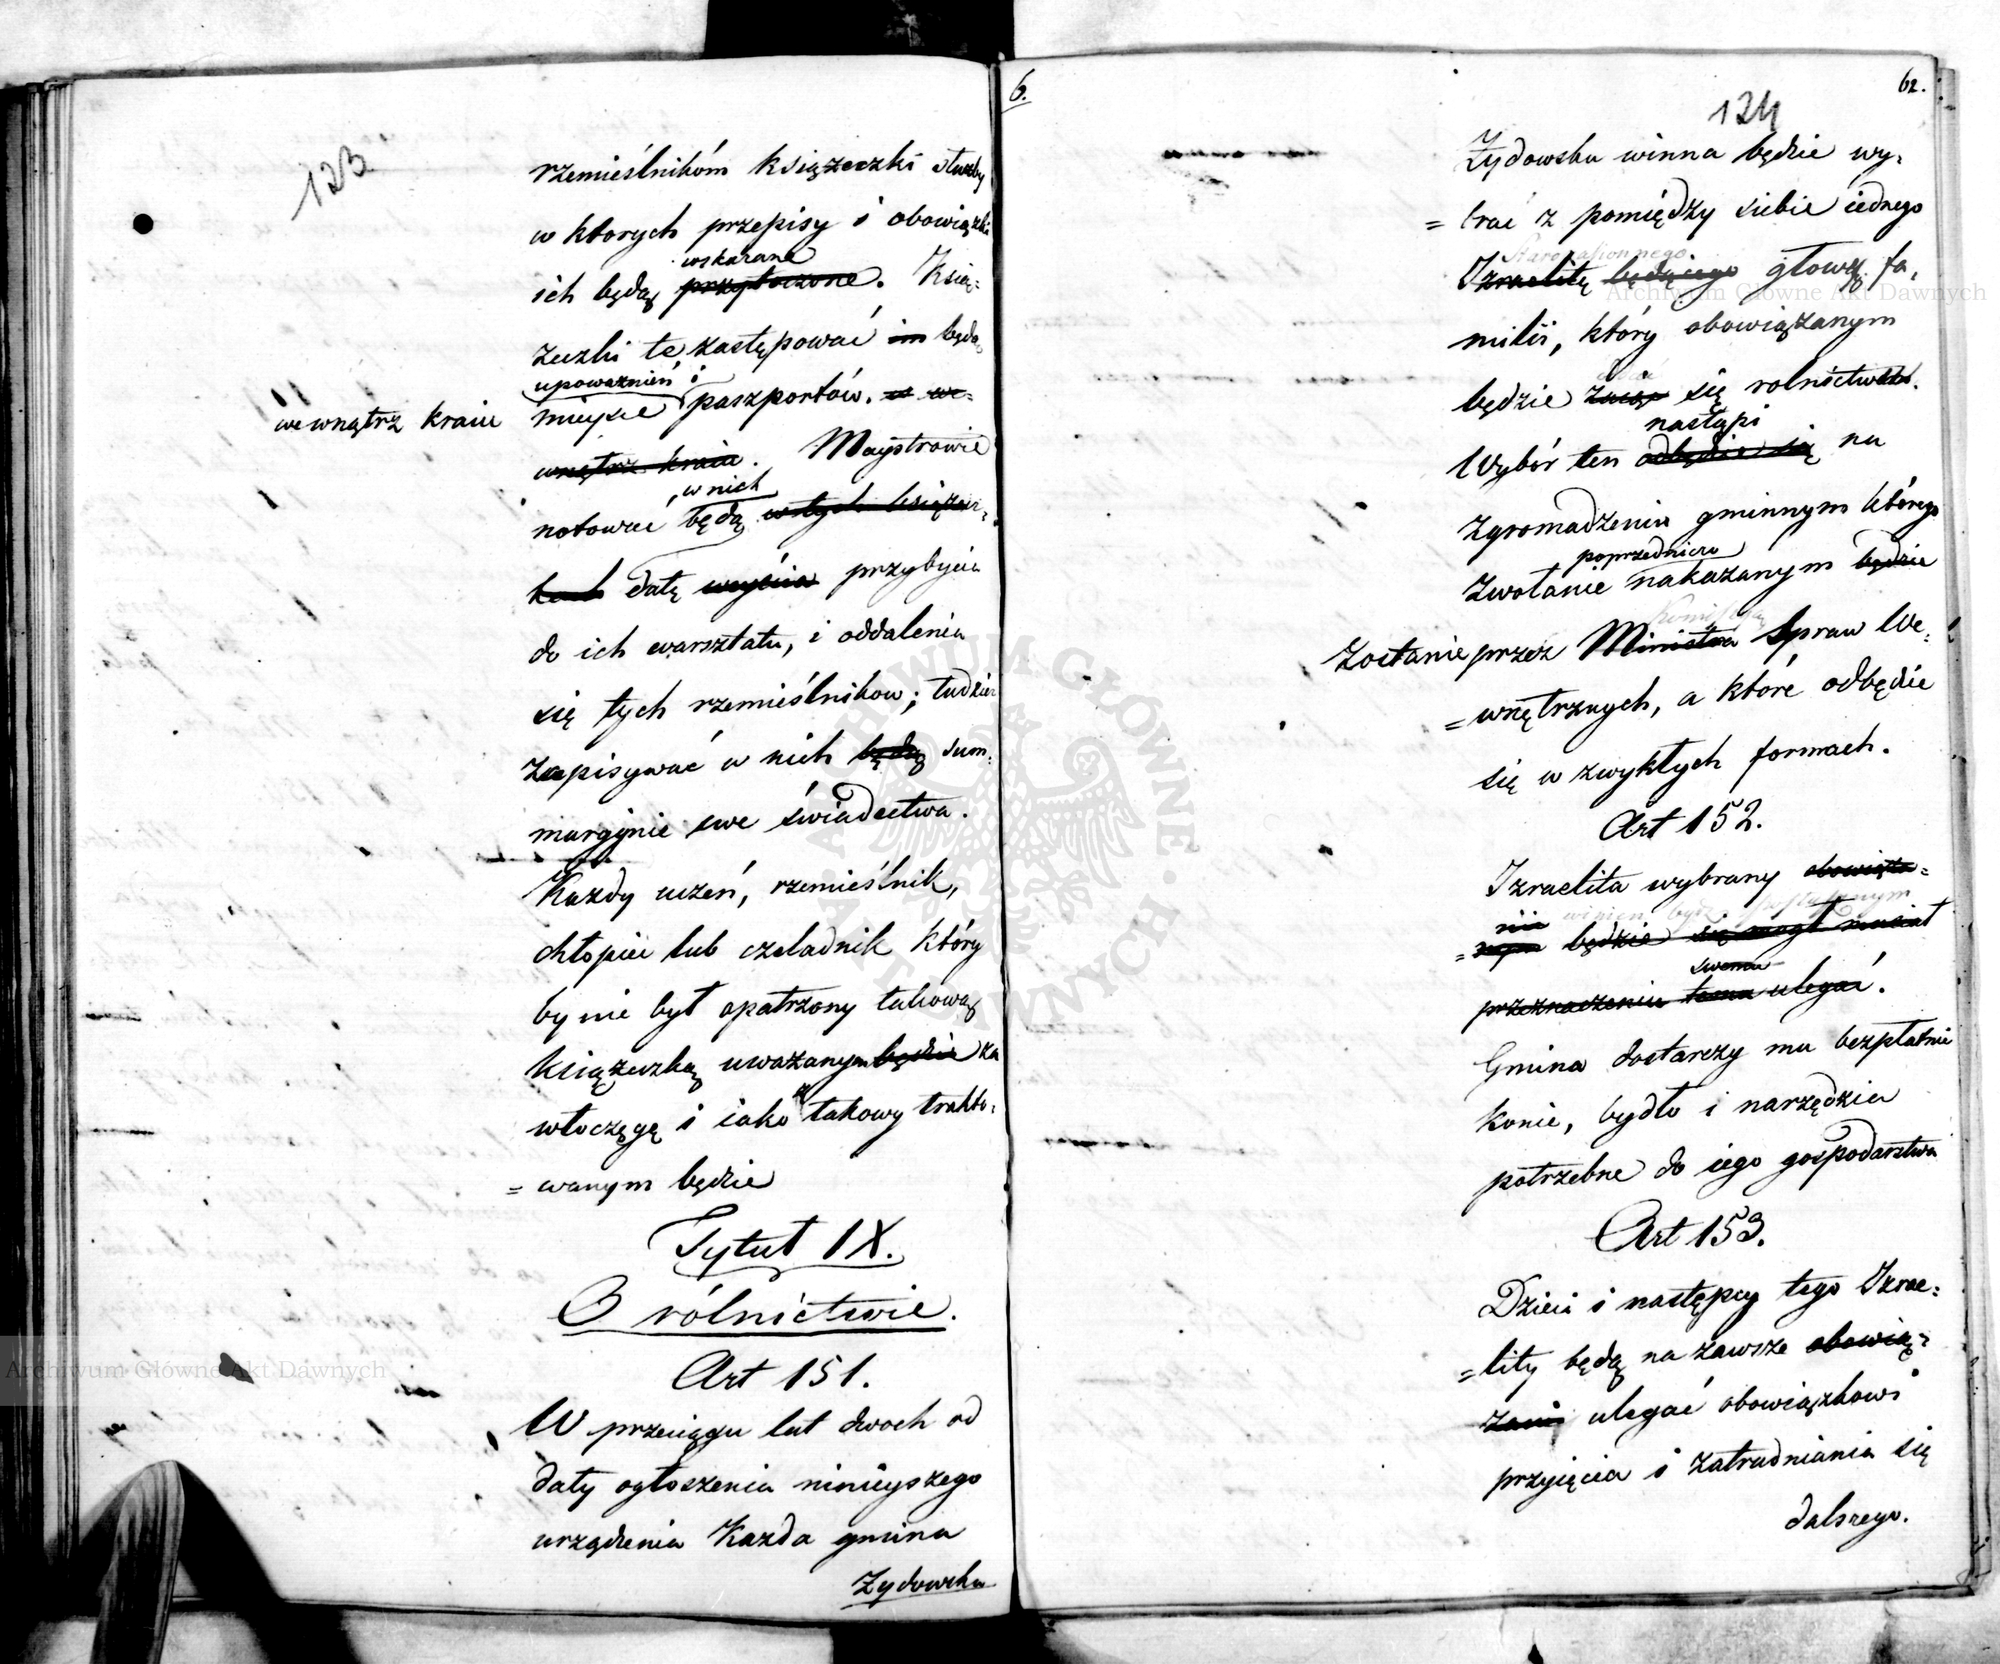 123
rzemieślnikom książeczki służby
w ktorych przepisy i obowiązki
wskazane
ich będą przytoczone. Ksią-
żeczki te zastępować im będą
upoważnień i
we wnątrz kraiu mieysce paszportów. w we-
wnątrz kraiu. Maystrowie
w nich
notować będą w tych książecz-
kach datę weyścia przybycia
do ich warsztatu, i oddalenia
się tych rzemieślnikow; tudzież
zapisywać w nich będą sum-
marycznie swe świadectwa.
Każdy uczeń, rzemieślnik,
chłopiec lub czeladnik który
by nie był opatrzony takową
książeczką uważanym będzie za
włoczęgę i iako takowy trakto-
= wanym będzie
Tytuł IX.
O rólnictwie.
Art 151.
W przeciągu lat dwoch od
daty ogłoszenia ninieyszego
urządzenia Każda gmina
Żydowska
6.
62.
124
Żydowska winna będzie wy-
= brać z pomiędzy siebie iednego
Starozakonnego
Izraelitę będącego głową fa-
milii, który obowiązanym
będzie zaiąć się rolnictwem.
nastąpi
Wybór ten odbędzie się na
Zgromadzeniu gminnym którego
poprzedniczo
Zwołanie nakazanym będzie
Kommissyą
zostanie przez Ministra Spraw We-
= wnętrznych, a które odbędzie
się w zwykłych formach.
Art 152.
Izraelita wybrany obowiąza-
winien bydź
nie
= nym będzie się mogł musiał
swemu
przeznaczeniu temu ulegać.
Gmina dostarczy mu bezpłatnie
konie, bydło i narzędzia
potrzebne do iego gospodarstwa
Art 153.
Dzieci i następcy tego Izrae-
= lity będą na zawsze obowią-
zani ulegać obowiązkowi
przyięcia i zatrudniania się
dalszego.
Archiwum Główne Akt Dawnych
Archiwum Główne Akt Dawnych
ARCHIWUM GŁÓWNE AKT DAWNYCH